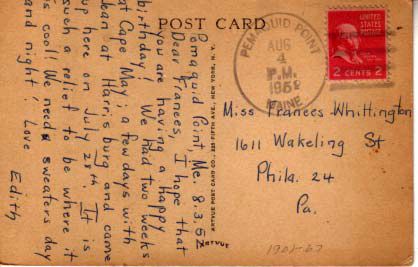 POST CARD
PEMAQUID POINT
AUG
4
P.M.
MAINE
UNITED
STATES
POSTAGE
2 CENTS 2
Pemaquid Point, Me.
Dear Frances, I hope that
you are having a happy
birthday! We had two weeks
at Cape May; a few days with
Jean at Harrisburg and came
up here on July 28th. It is
such a relief to be where it
is cool! We need sweaters day
and night! Love
Edith
ARTVUE POST CARD CO. 225 FIFTH AVE., NEW YORK, N. Y.
ARTVUE
Miss Frances Whittington
1611 Wakeling St
Phila. 24
Pa.